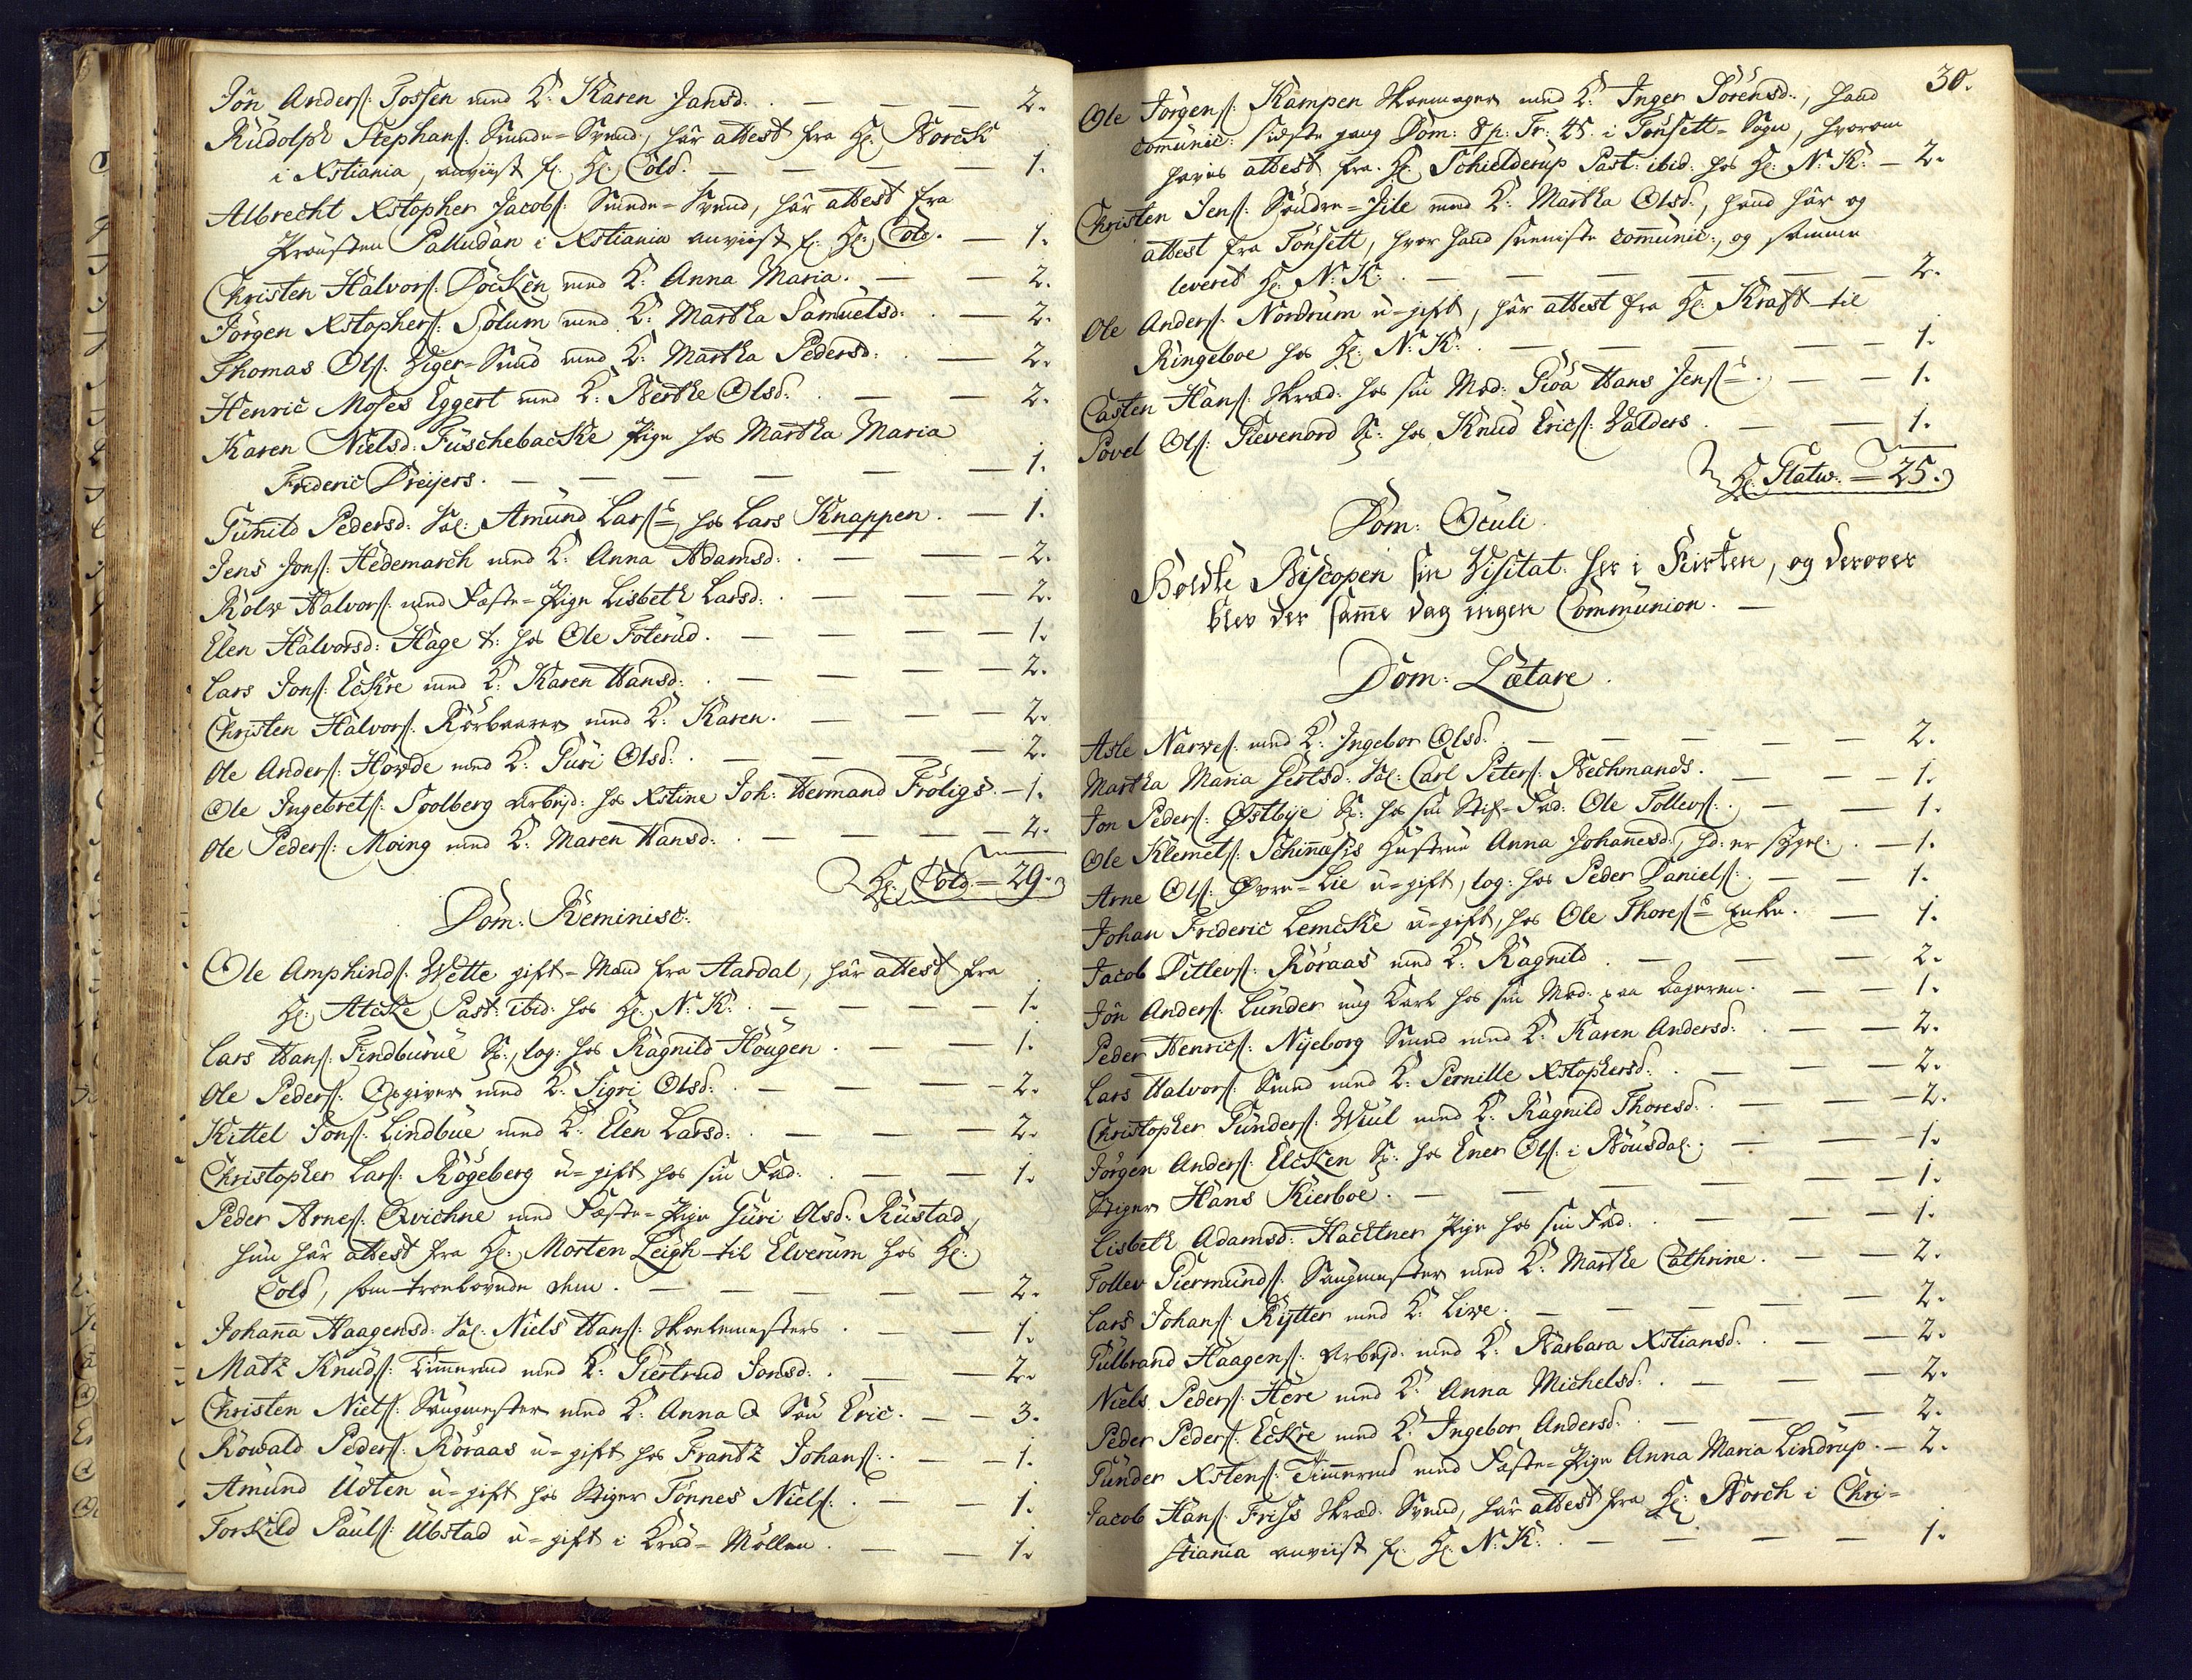 Jôn Anders: Fossen med K: Karen Jansd: . — — — 2.
Rûdolph Stephans: Smede-Svend, hâr attest fra Hr: Borck
i Xstiania, anviist f. Hr: Cold. — — — — 1.
Albrecht Xstopher Jacobs: Smede-Svend, hâr attest fra
Prousten Palludan i Xstiania anviist f. Hr: Cold. — 1.
Christen Halvors: Docken med K: Anna Maria. — — 2.
Jörgen Xstophers: Solum med K: Martha Samuelsd: . — 2.
Thomas Ols: Viger-Sund med K: Martha Pedersd: . — 2.
Henric Moses Eggert med K: Berthe Olsd: . — — 2.
Karen Nielsd: Fuschebacke Pige hos Martha Maria
Frideric Dreijers. — — — — — 1.
Gunild Pedersd: Sal: Amund Lars: hos Lars Knappen. — 1.
Jens Jons: Hedemarch med K: Anna Adamsd: . — — 2.
Rolv Halvors: med Fæste-Pige Lisbeth Larsd: . — — — 2.
Elen Halvorsd: Hage t: hos Ole Foterud. — — — — 1.
Lars Jons: Eckre med K: Karen Hansd: . — — — — 2.
Christen Halvors: Rörbaarer med K: Karen. — — — 2.
Ole Anders: Howde med K: Guri Olsd: . — — — — 2.
Ole Ingebrets: Soolberg Arbejd: hos Xstine Joh: Hermand Fröligs. — 1.
Ole Peders: Moing med K: Maren Hansd: . — — — — 2.
Hr: Cold = 29.
Dom: Reminisc:
Ole Amphinds: Wette gift-Mand fra Aardal, hâr attest fra
Hr: Atcke Past: ibid: hos Hr: N: K: . — — — — 1.
Lars Hans: Findburue Sp:, log: hos Ragnild Hougen. — — 1.
Ole Peders: Opgiver med K: Sigri Olsd: . — — — — 2.
Kittel Jons: Lindbue med K: Elen Larsd: . — — — 2.
Christopher Lars: Rögeberg u-gift hos sin Fad: . — — 1.
Peder Arnes: Qvichne med Fæste-Pige Guri Olsd: Rustad,
hun hâr attest fra Hr: Morten Leigh til Elverum hos Hr:
Cold, som troelovede dem. — — — — — 2.
Johanna Haagensd: Sal: Niels Hans: Skoelemesters. — — 1.
Matz Knuds: Timmermd med K: Giertrud Jonsd: . — — 2.
Christen Niels: Saugmester med K: Anna & Sön Eric. — — 3.
Rowald Peders: Röraas u-gift hos Frantz Johans: . — — 1.
Amund Udten u-gift hos Stiger Tönnes Niels: . — — 1.
Torkild Pauls: Ubstad u-gift i Krud-Möllen. — — 1.
30.
Ole Jörgens: Kampen Skoemager med K: Inger Sörensd:, hand
comunic: sidste gang Dom: 8 p: Tr: 45. i Tönsett-Sogn, hvorom
haves attest fra Hr: Schielderup Past: ibid: hos Hr: N: K: — 2.
Christen Jens: Söndre-Jile med K: Martha Olsd:, hand hâr og
attest fra Tönsett, hvor hand seeniste comunic:, og samme
leveret Hr: N: K: . — — — — — — 2.
Ole Anders: Nordrum u-gift, hâr attest fra Hr: Kraft til
Ringeboe hos Hr: N: K: . — — — — — 1.
Casten Hans: Skræd: hos sin Mod: Gioa Hans Jens: . — — 1.
Povel Ols: Gievenord Sp: hos Knud Erics: Valders. — — 1.
Hr: Flatw. = 25.
Dom: Oculi.
Holdte Biscopen sin Visitat: her i Kirken, og derover
blev der samme dag ingen Communion. —
Dom: Lætare.
Asle Narves: med K: Ingebor Olsd: . — — — — — 2.
Martha Maria Gertsd: Sal: Carl Peters: Bechmands. — — — 1.
Jon Peders: Østbye Sp: hos sin Stif-Fad: Ole Tollevs: . — — 1.
Ole Klemets: Schinnæsis Hustrue Anna Johannesd:, hd: er sygel: . — 1.
Arne Ols: Øvre-Lie u-gift, log: hos Peder Daniels: . — — 1.
Johan Frideric Lemcke u-gift, hos Ole Thores: Enke. — 1.
Jacob Ditlevs: Röraas med K: Ragnild. — — — 2.
Jôn Anders: Lunder ung Karl hos sin Mod: paa Lageren. — — 1.
Peder Henrics: Nyeborg Smed med K: Karen Andersd: . — — 2.
Lars Halvors: Smed med K: Pernille Xstophersd: . — — — 2.
Christopher Gunders: Wiul med K: Ragnild Thoresd: . — — 2.
Jörgen Anders: Elcken Sp: hos Ener Ols: i Nousdal. — — 1.
Stiger Hans Kierboe. — — — — — — 1.
Lisbeth Adamsd: Hachtner Pige hos sin Fad: . — — — 1.
Tollev Giermunds: Saugmester med K: Marthe Cathrine. — — 2.
Lars Johans: Rytter med K: Live. — — — — — 2.
Gulbrand Haagens: Arbejd: med K: Barbara Xstiansd: . — 2.
Niels Peders: Here med K: Anna Michelsd: . — — — 2.
Peder Peders: Eckre med K: Ingebor Andersd: . — — — 2.
Gunder Xstens: Timmermd med Fæste-Pige Anna Maria Lindrup. — 2.
Jacob Hans: Friss Skræd. Svend, hâr attest fra Hr: Borch i Chri-
stiania anviist f. Hr: N: K: . — — — — 1.